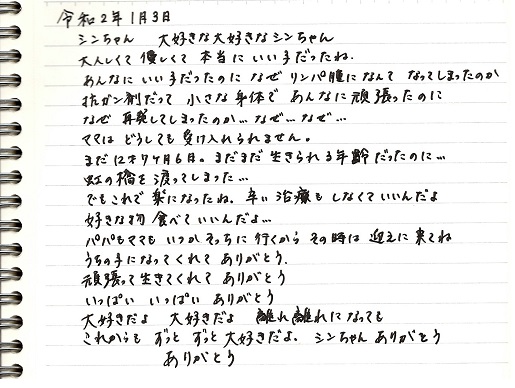 令和2年1月3日
シンちゃん 大好きな大好きなシンちゃん
大人しくて優しくて本当にいい子だったね.
あんなにいい子だったのになぜリンパ腫になんてなってしまったのか
抗ガン剤だって小さな身体であんなに頑張ったのに
なぜ再発してしまったのか…なぜ…なぜ…
ママはどうしても受け入れられません。
まだ12才9ヶ月6日。まだまだ生きられる年齢だったのに…
虹の橋を渡ってしまった…
でもこれで楽になったね.辛い治療もしなくていいんだよ
好きな物食べていいんだよ…
パパもママもいつかそっちに行くからその時は迎えに来てね
うちの子になってくれてありがとう.
頑張って生きてくれてありがとう
いっぱいいっぱいありがとう
大好きだよ 大好きだよ 離れ離れになっても
これからもずっとずっと大好きだよ. シンちゃんありがとう
ありがとう